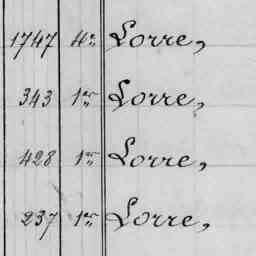 1747 4e Lorre,
343 1er Lorre,
428 1er Lorre,
237 1er Lorre,